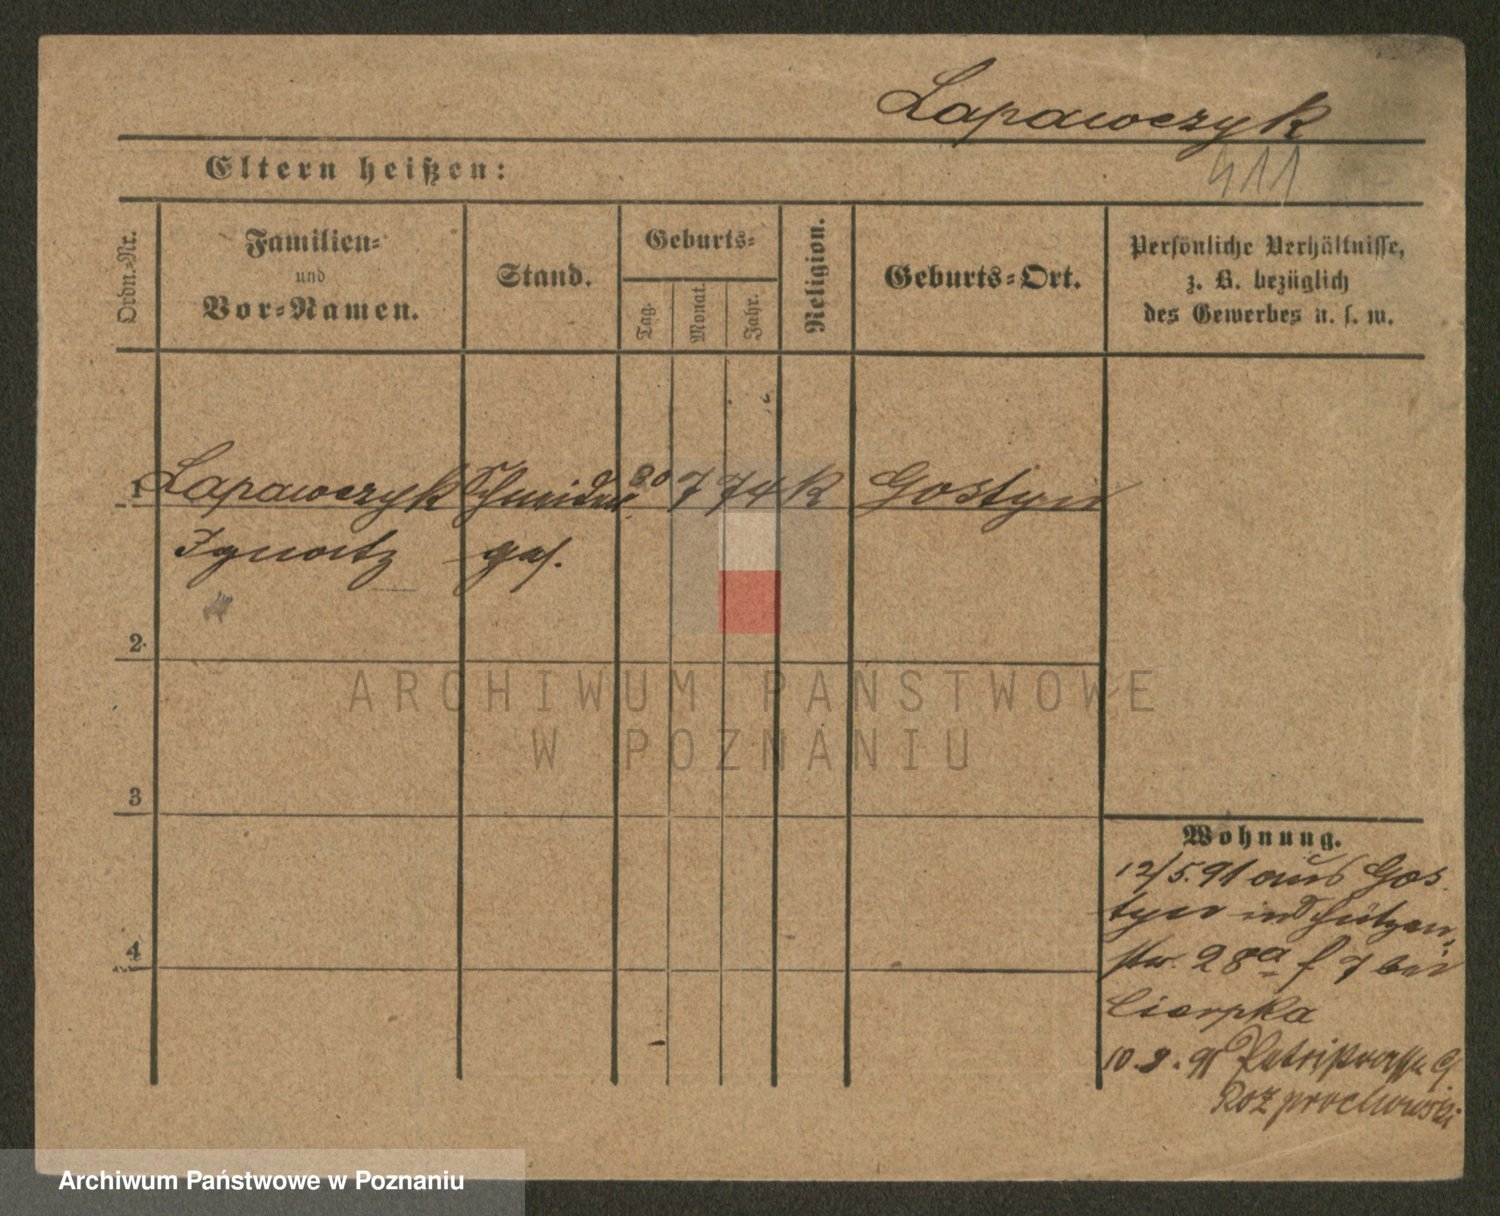 Lapawczyk
411
Eltern heißen:
Ordn.-Nr.
Familien-
und
Vor-Namen.
Stand.
Geburts-
Tag.
Monat.
Jahr.
Religion.
Geburts-Ort.
Persönliche Verhältnisse,
z. B. bezüglich
des Gewerbes u. s. w.
1 Lapawczyk Schneider 30 7 74 K Gostyn
Ignatz ges.
2.
3
4
ARCHIWUM PAŃSTWOWE
W POZNANIU
Wohnung.
12/5.91 aus Gos
tyn in Schützen
str. 28a f 7 bei
Cierpka
10.8.91 Petristrasse 9
Rozprochowski
Archiwum Państwowe w Poznaniu